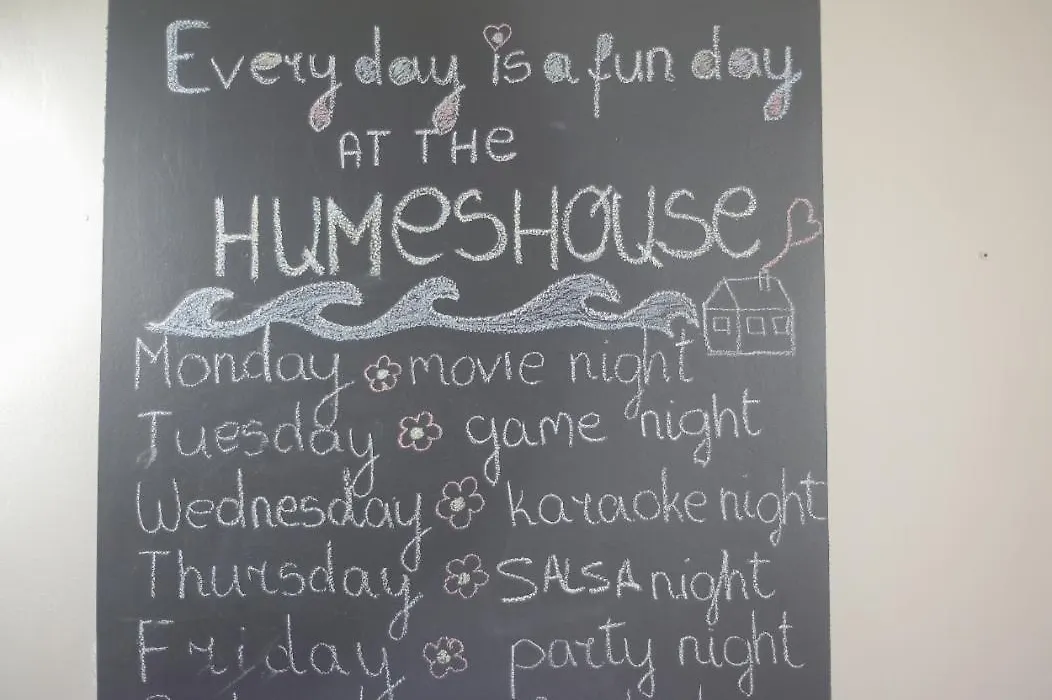 Every day is a fun day
AT THe
HUMesHOUse
Monday movie night
Tuesday game night
Wednesday karaoke night
Thursday SALSA night
Friday party night